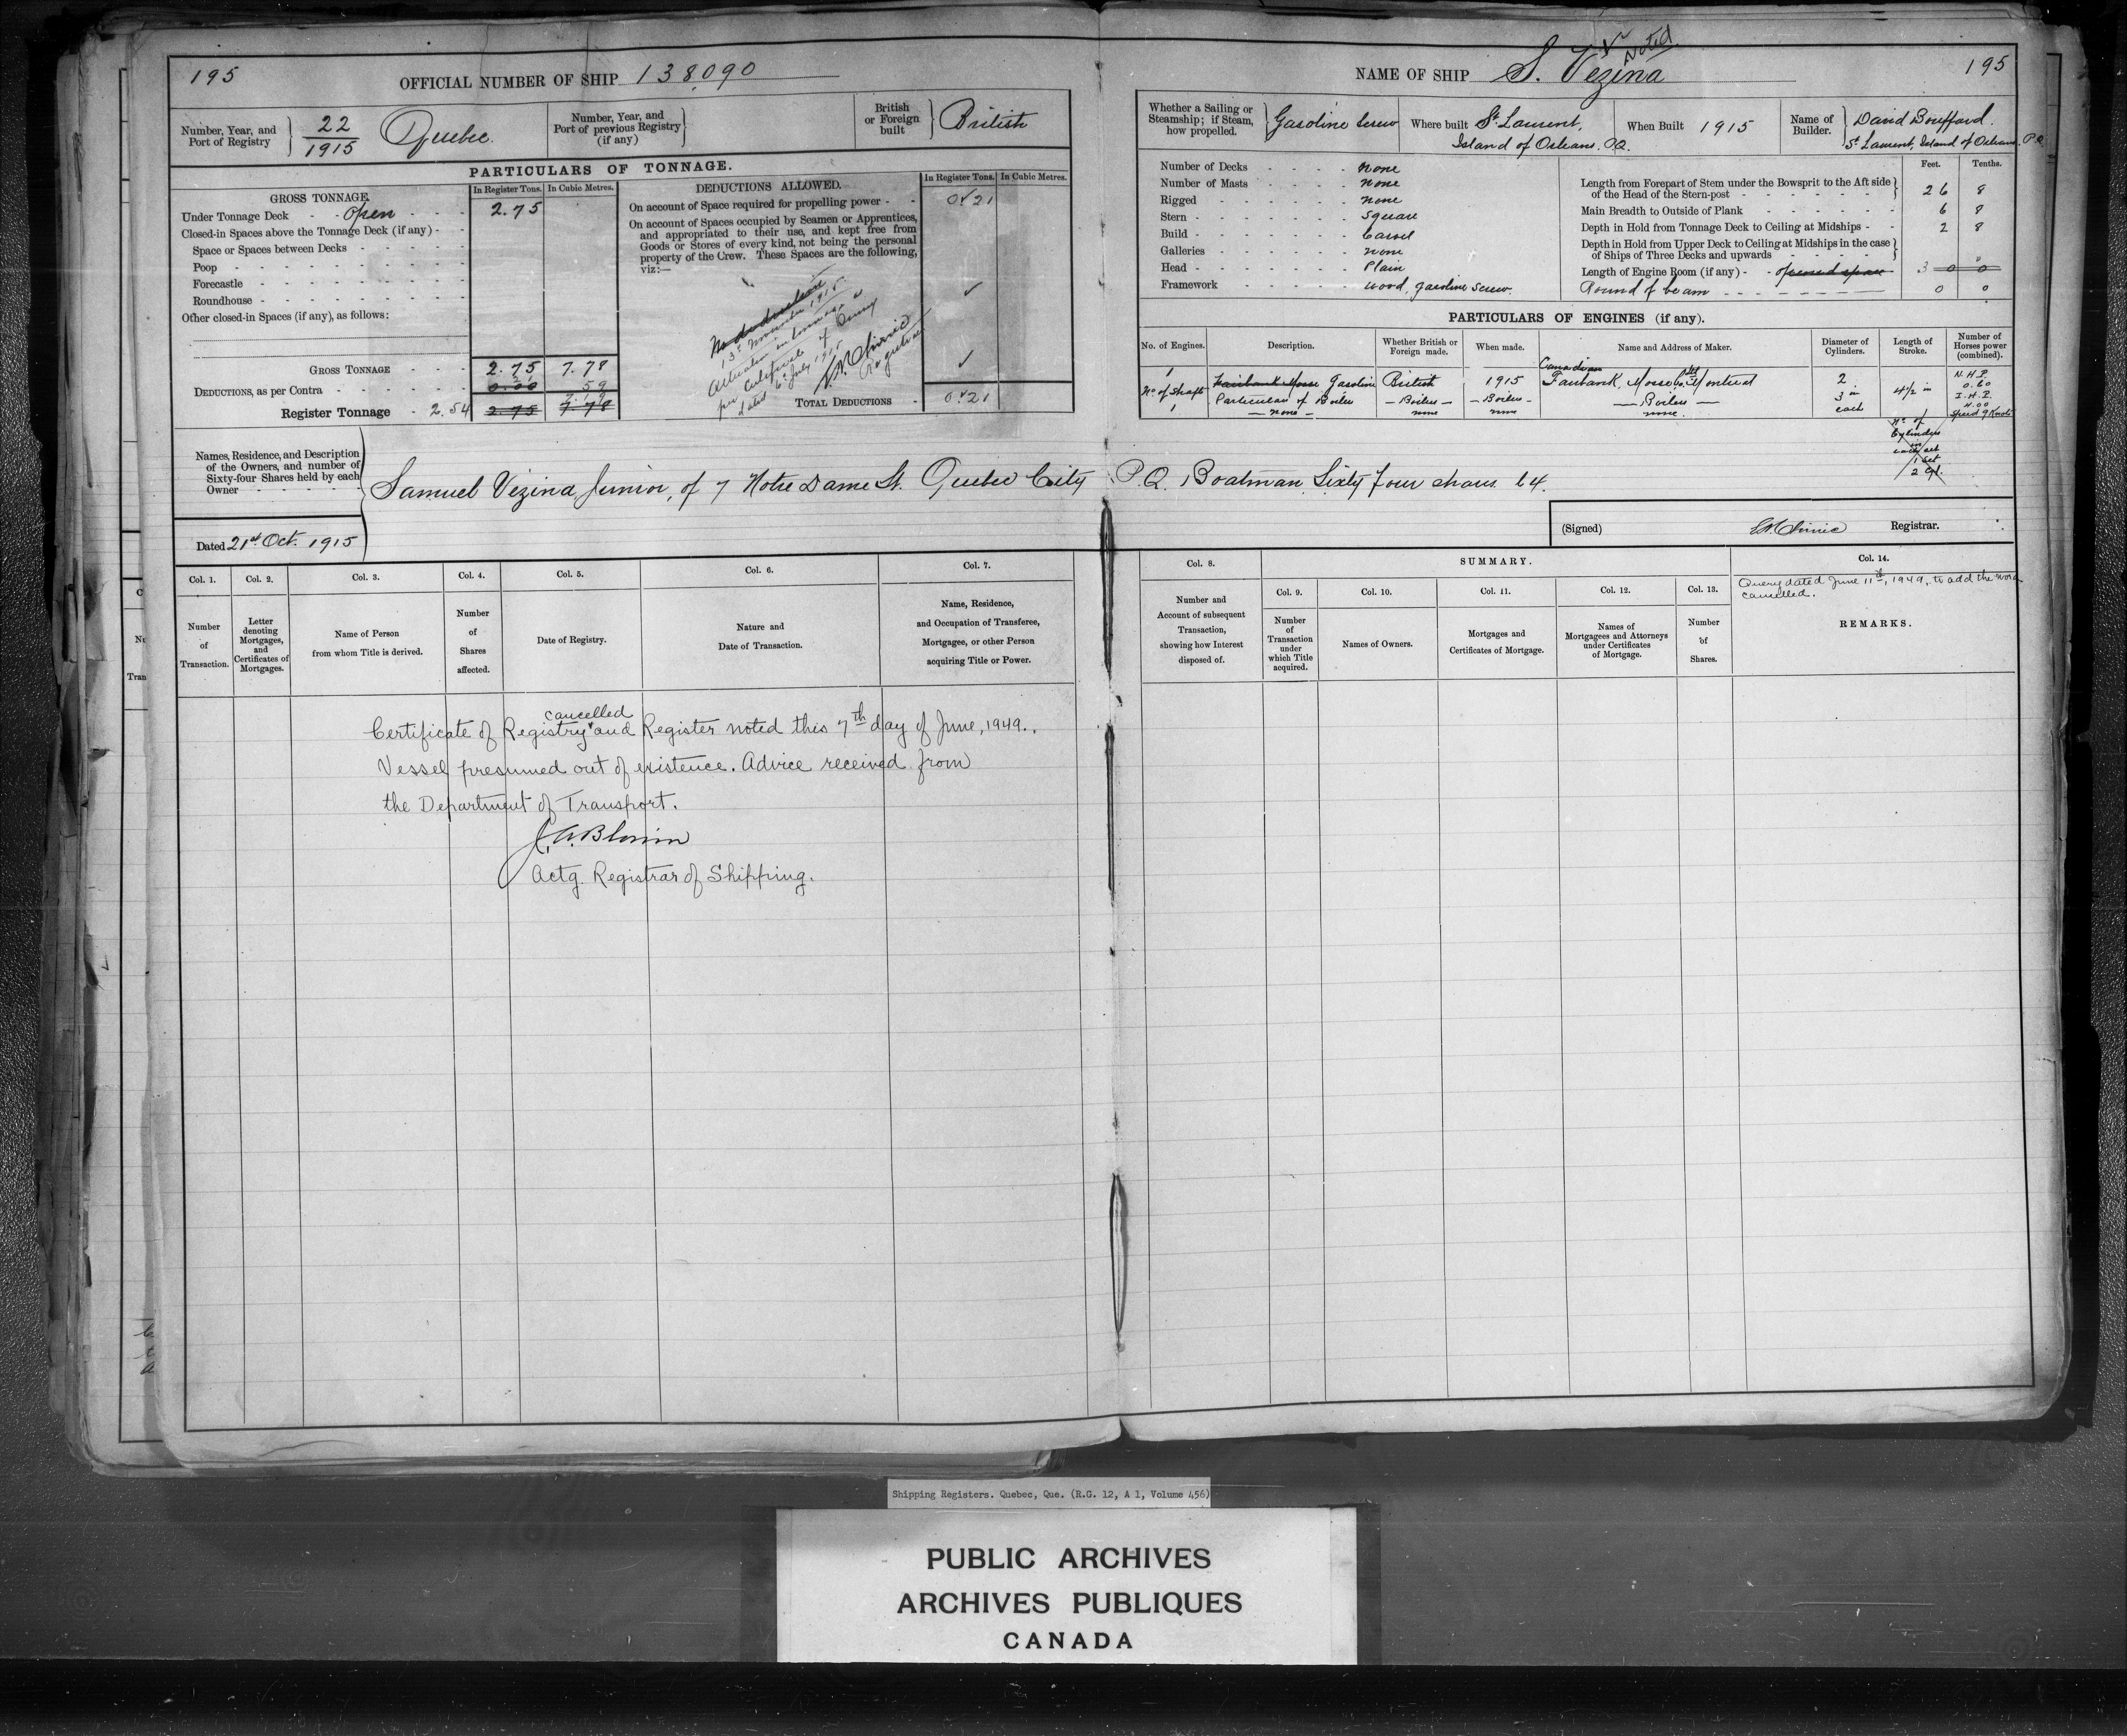 195
OFFICIAL NUMBER OF SHIP 138,090
Number, Year, and Port of Registry } 22/1915 Quebec.
Number, Year, and Port of previous Registry (if any) }
British or Foreign built } British
PARTICULARS OF TONNAGE.
GROSS TONNAGE. In Register Tons. In Cubic Metres.
Under Tonnage Deck - - open - - - 2.75
Closed-in Spaces above the Tonnage Deck (if any) - -
Space or Spaces between Decks
Poop
Forecastle
Roundhouse
Other closed-in Spaces (if any), as follows:
GROSS TONNAGE 2.75 7.78
DEDUCTIONS, as per Contra 0.00 59
Register Tonnage - 2.54 2.75 7.78
DEDUCTIONS ALLOWED. In Register Tons. In Cubic Metres.
On account of Space required for propelling power - - 0.21
On account of Spaces occupied by Seamen or Apprentices,
and appropriated to their use, and kept free from
Goods or Stores of every kind, not being the personal
property of the Crew. These Spaces are the following,
viz:—
No deduction
13th November 1915
dated 6th July 1915
Registrar
TOTAL DEDUCTIONS - 0.21
Names, Residence, and Description
of the Owners, and number of
Sixty-four Shares held by each
Owner
Samuel Vezina Junior, of 7 Notre Dame St. Quebec City P.Q. Boatman Sixty four shares 64.
Dated 21st Oct. 1915
Col. 1. Col. 2. Col. 3. Col. 4. Col. 5. Col. 6. Col. 7.
Number of Transaction.
Letter denoting Mortgages, and Certificates of Mortgages.
Name of Person from whom Title is derived.
Number of Shares affected.
Date of Registry.
Nature and Date of Transaction.
Name, Residence, and Occupation of Transferee, Mortgagee, or other Person acquiring Title or Power.
cancelled
Certificate of Registry and Register noted this 7th day of June, 1949.
Vessel presumed out of existence. Advice received from
the Department of Transport.
J.A. Blouin
Actg. Registrar of Shipping.
NAME OF SHIP S. Vezina
Noted
195
Whether a Sailing or Steamship; if Steam, how propelled. } Gasoline Screw
Where built St Laurent, Island of Orleans. P.Q.
When Built 1915
Name of Builder. } David Bouffard. St Laurent, Island of Orleans. P.Q.
Number of Decks - - - - none
Number of Masts - - - - none
Rigged - - - - none
Stern - - - - Square
Build - - - - Carvel
Galleries - - - - none
Head - - - - Plain
Framework - - - - wood, gasoline screw.
Feet. Tenths.
Length from Forepart of Stem under the Bowsprit to the Aft side of the Head of the Stern-post 26 8
Main Breadth to Outside of Plank 6 8
Depth in Hold from Tonnage Deck to Ceiling at Midships 2 8
Depth in Hold from Upper Deck to Ceiling at Midships in the case of Ships of Three Decks and upwards
Length of Engine Room (if any) - opened space 3 0 0
Round of beam 0 0
PARTICULARS OF ENGINES (if any).
No. of Engines. Description. Whether British or Foreign made. When made. Name and Address of Maker. Diameter of Cylinders. Length of Stroke. Number of Horses power (combined).
1 Fairbank Morse Gasoline British 1915 Canadian Fairbank, Morse Co. Ltd Montreal 2 4½ in N.H.P. 0.60
No of Shaft Particulars of Boilers — Boilers — — Boilers — — Boilers — 3 in I.H.P. 4.00
1 — none — none none none. each Speed 9 Knots
No of
Cylinders
in
each set
1 set
2 Cyl.
(Signed) Registrar.
Col. 8. SUMMARY. Col. 14.
Col. 9. Col. 10. Col. 11. Col. 12. Col. 13.
Query dated June 11th, 1949, to add the word
cancelled.
Number and Account of subsequent Transaction, showing how Interest disposed of.
Number of Transaction under which Title acquired.
Names of Owners.
Mortgages and Certificates of Mortgage.
Names of Mortgagees and Attorneys under Certificates of Mortgage.
Number of Shares.
REMARKS.
Shipping Registers. Quebec, Que. (R.G. 12, A 1, Volume 456)
PUBLIC ARCHIVES
ARCHIVES PUBLIQUES
CANADA